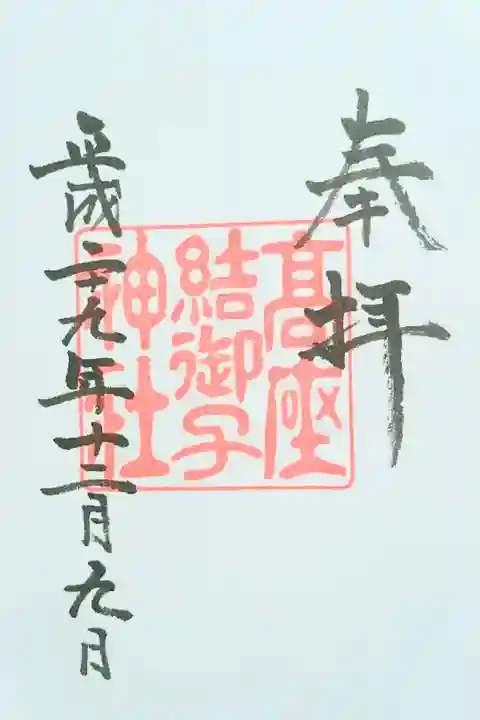 奉拝
髙座
結御子
神社
平成二十九年十二月九日